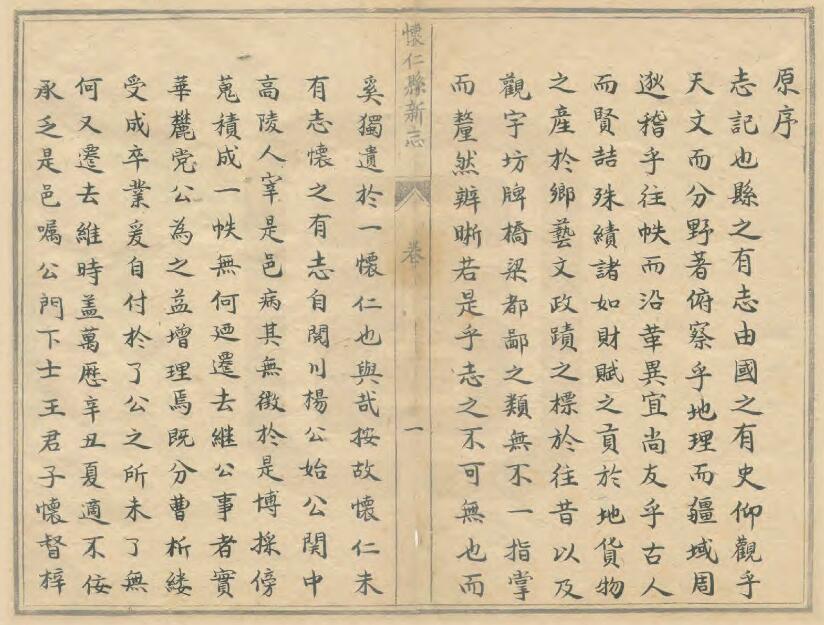 原序
志記也縣之有志由國之有史仰觀乎
天文而分野著俯察乎地理而疆域周
逖稽乎往帙而沿革異宜尚友乎古人
而賢喆殊績諸如財賦之貢於地貨物
之產於鄉藝文政蹟之標於往昔以及
觀宇坊牌橋梁都鄙之類無不一指掌
而釐然辨晰若是乎志之不可無也而
懷仁縣新志
卷
一
奚獨遺於一懷仁也與哉按故懷仁未
有志懷之有志自関川楊公始公関中
高陵人宰是邑病其無徵於是博採傍
蒐積成一帙無何廼遷去継公事者實
華麓党公為之益增理焉既分曹析縷
受成卒業爰自付於了公之所未了無
何又遷去維時盖萬厯辛丑夏適不佞
承乏是邑嘱公門下士王君子懷督梓